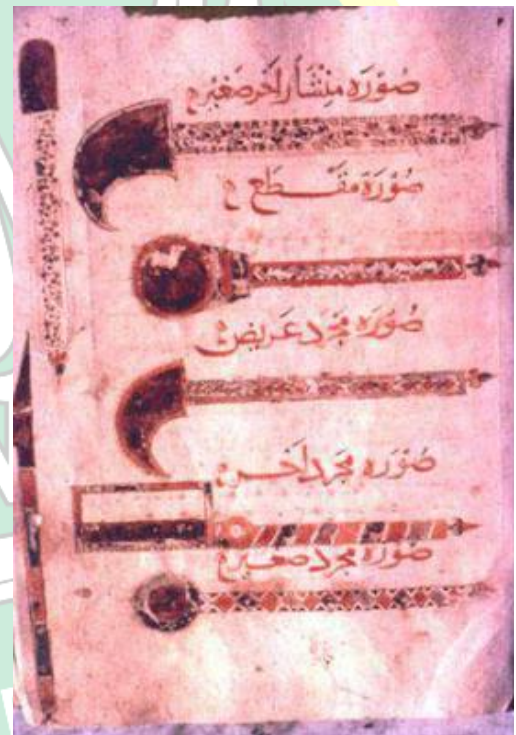 صورة منشار اخر صغير
صورة مقطع
صورة مجرد عريض
صورة مجرد اخر
صورة مجرد صغير